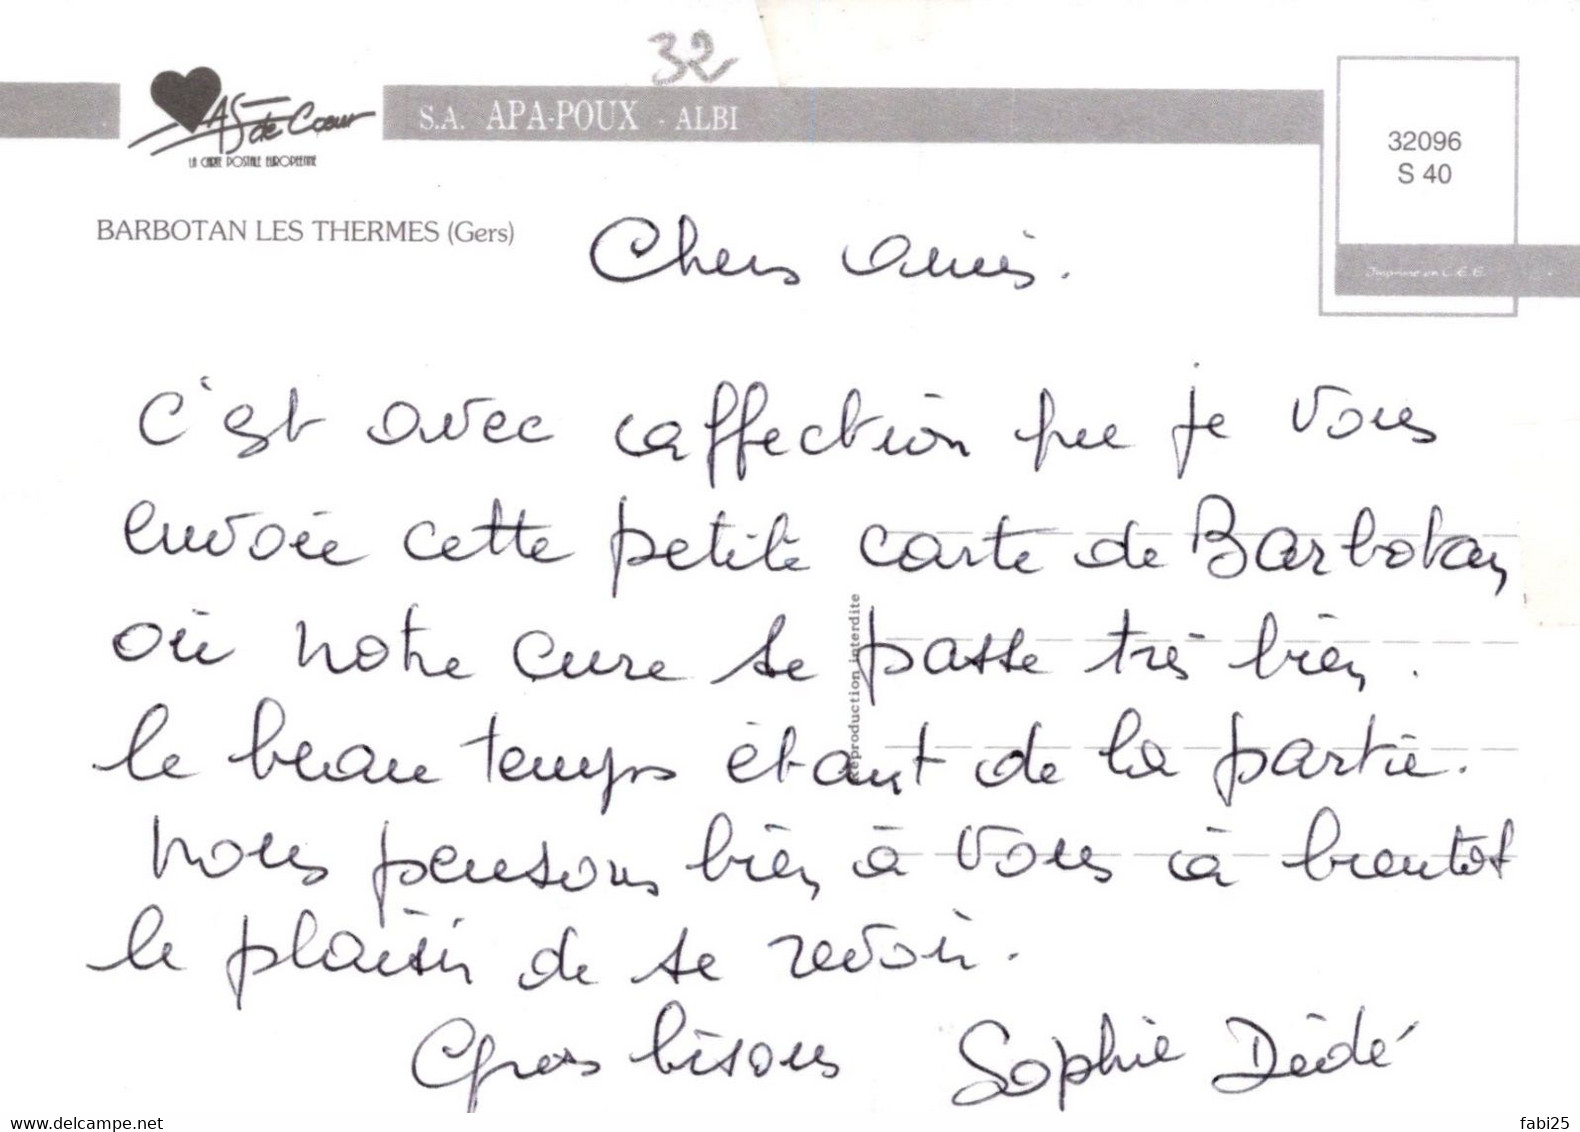 32
AS de Cœur
LA CARTE POSTALE EUROPEENNE
S.A. APA-POUX - ALBI
32096
S 40
Imprimé en C.E.E.
BARBOTAN LES THERMES (Gers)
Chers amis.
C'est avec affection que je vous
envoie cette petite carte de Barbotan
où notre cure se passe très bien.
le beau temps étant de la partie.
nous pensons bien à vous à bientôt
le plaisir de se revoir.
Gros bisous Sophie Dédé
Reproduction interdite
WWW.DELCAMPE.NET
fabi25